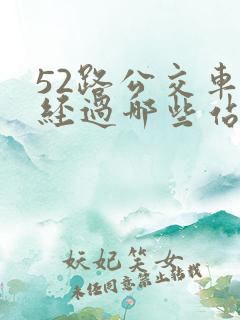 52路公交车
经过哪些佔
妖妃笑女
未任同意禁止转载